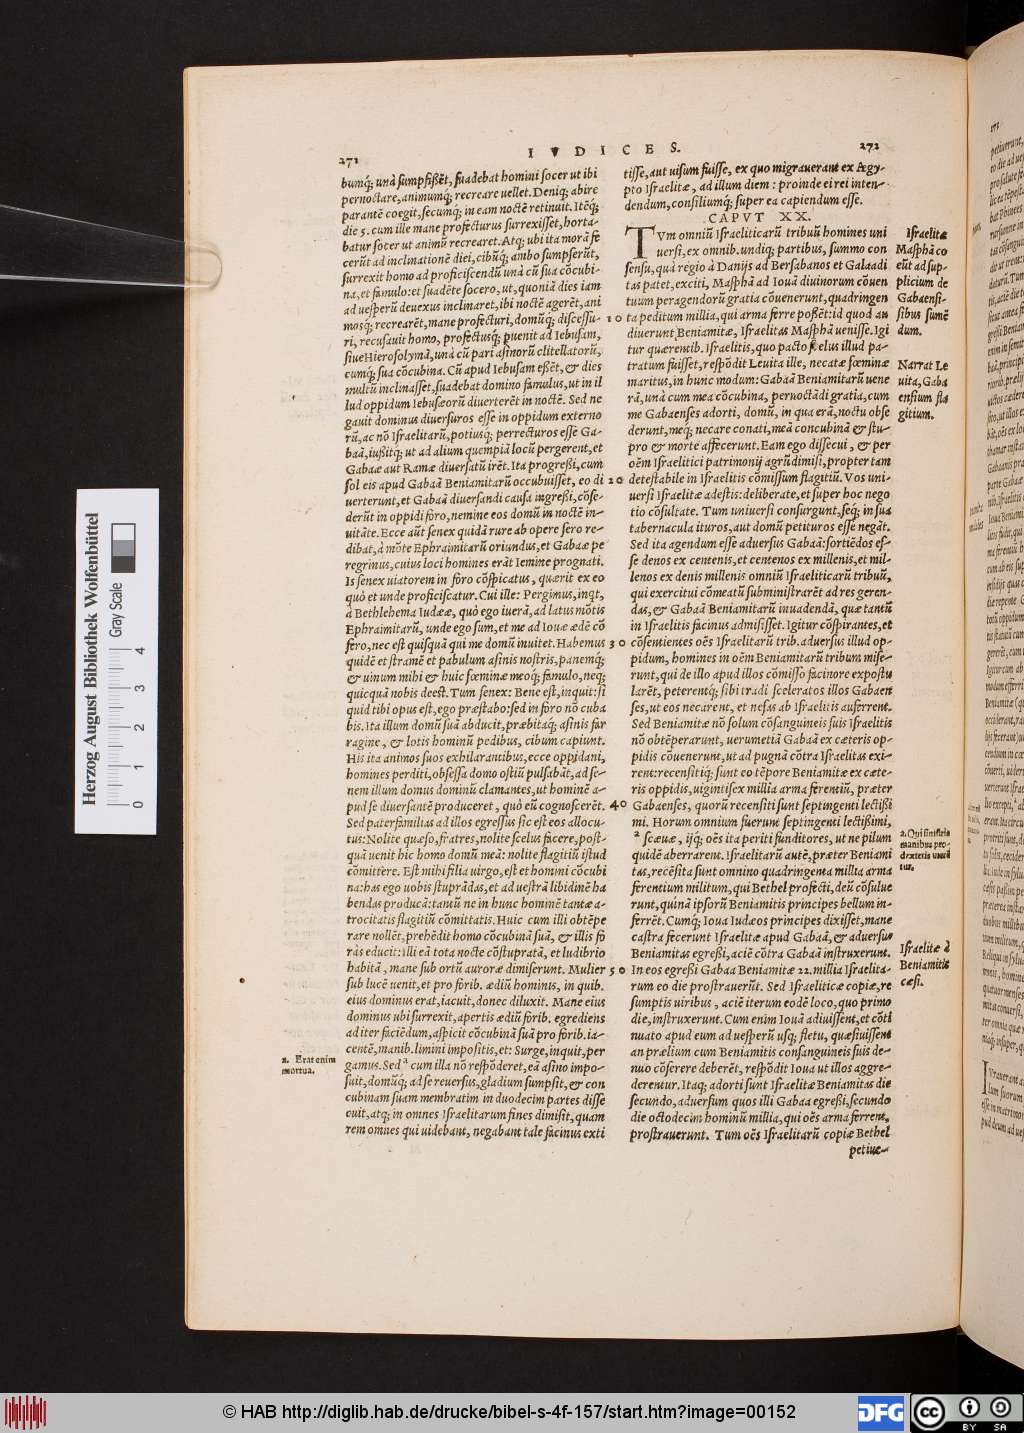 271
IVDICES.
272
bumq́; unà sumpsißēt, suadebat homini socer ut ibi
pernoctare, animumq́; recreare uellet. Deniq; abire
parantē coegit, secumq́; in eam noctē retinuit. Itēq;
die 5. cum ille mane profecturus surrexisset, horta-
batur socer ut animū recrearet. Atq; ubi ita morā fe
cerūt ad inclinationē diei, cibūq́; ambo sumpserūt,
surrexit homo ad proficiscendū unà cū sua cōcubi-
na, et famulo: et suadēte socero, ut, quoniā dies iam
ad uesperū deuexus inclinaret, ibi noctē agerēt, ani
mosq; recrearēt, mane profecturi, domūq; discessu-
ri, recusauit homo, profectusq́; puenit ad Iebusam,
siue Hierosolymā, unà cū pari asinorū clitellatorū,
cumq́; sua cōcubina. Cū apud Iebusam eßēt, & dies
multū inclinasset, suadebat domino famulus, ut in il
lud oppidum Iebusæorū diuerterēt in noctē. Sed ne
gauit dominus diuersuros esse in oppidum externo
rū, ac nō Israelitarū, potiusq́; perrecturos esse Ga-
baā, iußitq́; ut ad alium quempiā locū pergerent, et
Gabaæ aut Ramæ diuersatū irēt. Ita progreßi, cum
sol eis apud Gabaā Beniamitarū occubuisset, eo di
uerterunt, et Gabaā diuersandi causa ingreßi, cōse-
derūt in oppidi foro, nemine eos domū in noctē in-
uitāte. Ecce aūt senex quidā rure ab opere sero re-
dibat, à mōte Ephraimitarū oriundus, et Gabaæ pe
regrinus, cuius loci homines erāt Iemine prognati.
Is senex uiatorem in foro cōspicatus, quærit ex eo
quò et unde proficiscatur. Cui ille: Pergimus, inqt,
à Bethlehema Iudææ, quò ego iuerā, ad latus mōtis
Ephraimitarū, unde ego sum, et me ad Iouæ ædē cō
fero, nec est quisquā qui me domū inuitet. Habemus
quidē et stramē et pabulum asinis nostris, panemq́;
& uinum mihi & huic fœminæ meoq́; famulo, neq;
quicquā nobis deest. Tum senex: Bene est, inquit: si
quid tibi opus est, ego præstabo: sed in foro nō cuba
bis. Ita illum domū suā abducit, præbitaq́; asinis far
ragine, & lotis hominū pedibus, cibum capiunt.
His ita animos suos exhilarantibus, ecce oppidani,
homines perditi, obsessa domo ostiū pulsabāt, ad se-
nem illum domus dominū clamantes, ut hominē a-
pud se diuersantē produceret, quò eū cognoscerēt.
Sed paterfamilias ad illos egressus sic est eos allocu-
tus: Nolite quæso, fratres, nolite scelus facere, post-
quā uenit hic homo domū meā: nolite flagitiū istud
cōmittere. Est mihi filia uirgo, est et homini cōcubi
na: has ego uobis stuprādas, et ad uestrā libidinē ha
bendas producā: tantū ne in hunc hominē tantæ a-
trocitatis flagitiū cōmittatis. Huic cum illi obtēpe
rare nollēt, prehēdit homo cōcubinā suā, & illis fo
ràs educit: illi eā tota nocte cōstupratā, et ludibrio
habitā, mane sub ortū auroræ dimiserunt. Mulier
sub lucē uenit, et pro forib. ædiū hominis, in quib.
eius dominus erat, iacuit, donec diluxit. Mane eius
dominus ubi surrexit, apertis ædiū forib. egrediens
ad iter faciēdum, aspicit cōcubinā suā pro forib. ia-
centē, manib. limini impositis, et: Surge, inquit, per
gamus. Sed ᵃ cum illa nō respōderet, eā asino impo-
suit, domūq́; ad se reuersus, gladium sumpsit, & con
cubinam suam membratim in duodecim partes disse
cuit, atq; in omnes Israelitarum fines dimisit, quam
rem omnes qui uidebant, negabant tale facinus exti
a. Erat enim
mortua.
10
20
30
40
50
tisse, aut uisum fuisse, ex quo migrauerant ex Ægy-
pto Israelitæ, ad illum diem: proinde ei rei inten-
dendum, consiliumq́; super ea capiendum esse.
CAPVT XX.
TVm omniū Israeliticarū tribuū homines uni
uersi, ex omnib. undiq; partibus, summo con
sensu, quà regio à Danijs ad Bersabanos et Galaadi
tas patet, exciti, Masphā ad Ioua diuinorum cōuen
tuum peragendorū gratia cōuenerunt, quadringen
ta peditum millia, qui arma ferre poßēt: id quod au
diuerunt Beniamitæ, Israelitas Masphā uenisse. Igi
tur quærentib. Israelitis, quo pacto scelus illud pa-
tratum fuisset, respōdit Leuita ille, necatæ fœminæ
maritus, in hunc modum: Gabaā Beniamitarū uene
rā, unà cum mea cōcubina, pernoctādi gratia, cum
me Gabaenses adorti, domū, in qua erā, noctu obse
derunt, meq́; necare conati, meā concubinā & stu-
pro & morte affecerunt. Eam ego dissecui, & per
oēm Israelitici patrimonij agrū dimisi, propter tam
detestabile in Israelitis cōmissum flagitiū. Vos uni-
uersi Israelitæ adestis: deliberate, et super hoc nego
tio cōsultate. Tum uniuersi consurgunt, seq́; in sua
tabernacula ituros, aut domū petituros esse negāt.
Sed ita agendum esse aduersus Gabaā: sortiēdos es-
se denos ex centenis, et centenos ex millenis, et mil-
lenos ex denis millenis omniū Israeliticarū tribuū,
qui exercitui cōmeatū subministrarēt ad res geren-
das, & Gabaā Beniamitarū inuadendā, quæ tantū
in Israelitis facinus admisisset. Igitur cōspirantes, et
cōsentientes oēs Israelitarū trib. aduersus illud op-
pidum, homines in oēm Beniamitarū tribum mise-
runt, qui de illo apud illos cōmisso facinore expostu
larēt, peterentq́; sibi tradi sceleratos illos Gabaen
ses, ut eos necarent, et nefas ab Israelitis auferrent.
Sed Beniamitæ nō solum cōsanguineis suis Israelitis
nō obtēperarunt, uerumetiā Gabaā ex cæteris op-
pidis cōuenerunt, ut ad pugnā cōtra Israelitas exi-
rent: recensitiq́; sunt eo tēpore Beniamitæ ex cæte-
ris oppidis, uigintisex millia arma ferentiū, præter
Gabaenses, quorū recensiti sunt septingenti lectißi
mi. Horum omnium fuerunt septingenti lectißimi,
ᵃ scæuæ, ijq́; oēs ita periti funditores, ut ne pilum
quidē aberrarent. Israelitarū autē, præter Beniami
tas, recēsita sunt omnino quadringenta millia arma
ferentium militum, qui Bethel profecti, deū cōsulue
runt, quinā ipsorū Beniamitis principes bellum in-
ferrēt. Cumq́; Ioua Iudæos principes dixisset, mane
castra fecerunt Israelitæ apud Gabaā, & aduersus
Beniamitas egreßi, aciē cōtra Gabaā instruxerunt.
In eos egreßi Gabaa Beniamitæ 22. millia Israelita-
rum eo die prostrauerūt. Sed Israeliticæ copiæ, re
sumptis uiribus, aciē iterum eodē loco, quo primo
die, instruxerunt. Cum enim Iouā adiuissent, et cōti
nuato apud eum ad uesperū usq; fletu, quæsiuissent
an prælium cum Beniamitis consanguineis suis de-
nuo cōserere deberēt, respōdit Ioua ut illos aggre-
derentur. Itaq; adorti sunt Israelitæ Beniamitas die
secundo, aduersum quos illi Gabaa egreßi, secundo
die octodecim hominū millia, qui oēs arma ferrent,
prostrauerunt. Tum oēs Israelitarū copiæ Bethel
petiue-
Israelitæ
Masphā co
eūt ad sup-
plicium de
Gabaensi-
bus sumē
dum.
Narrat Le
uita, Gaba
ensium fla
gitium.
a. Qui sinistris
manibus pro
dexteris utun
tur.
Israelitæ à
Beniamitis
cæsi.
Herzog August Bibliothek Wolfenbüttel
Gray Scale
0 1 2 3 4
© HAB http://diglib.hab.de/drucke/bibel-s-4f-157/start.htm?image=00152
DFG
cc BY SA